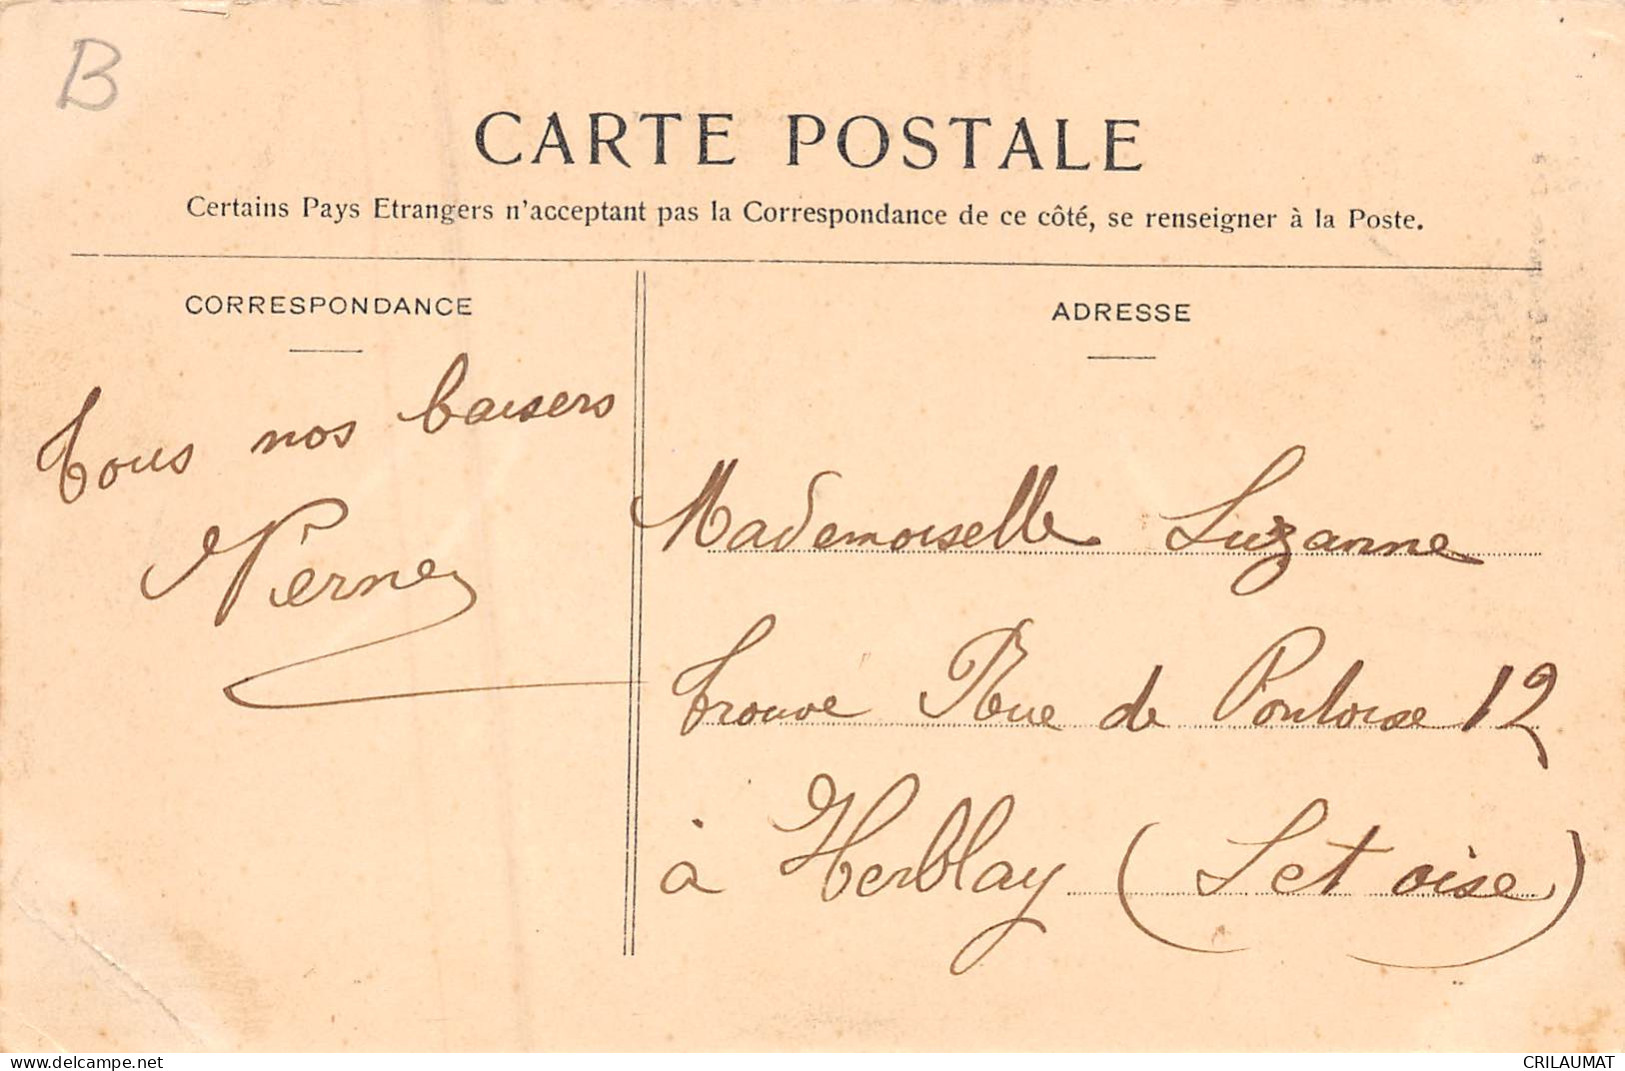 B
CARTE POSTALE
Certains Pays Etrangers n'acceptant pas la Correspondance de ce côté, se renseigner à la Poste.
CORRESPONDANCE
Tous nos baisers
ADRESSE
Mademoiselle Suzanne
Trouvé Rue de Pontoise 12
à Herblay (S et oise)
www.delcampe.net
CRILAUMAT